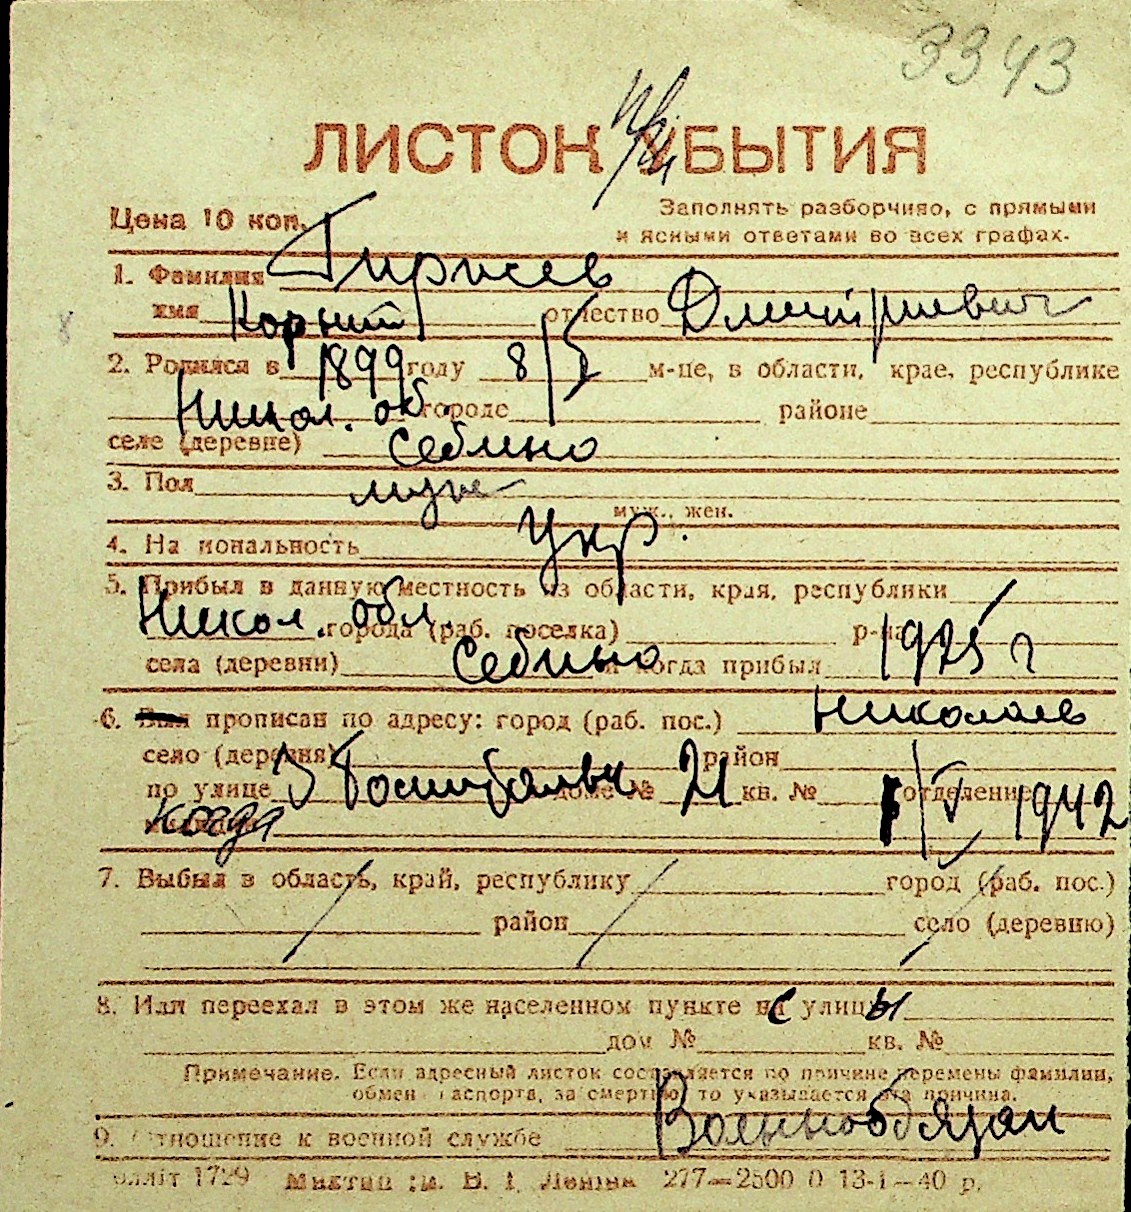 3343
ЛИСТОК УБЫТИЯ
Цена 10 коп.
Заполнять разборчиво, с прямыми
и ясными ответами во всех графах.
1. Фамилия
имя Корней отчество Дмитриевич
2. Родился в 1899 году 8/5 м-це, в области, крае, республике
Никол. об. городе районе
селе (деревне) Себино
3. Пол муж
муж., жен.
4. Национальность Укр.
5. Прибыл в данную местность из области, края, республики
Никол. обл. города (раб. поселка) р-на
села (деревни) Себино и когда прибыл 1925 г
6. Был прописан по адресу: город (раб. пос.) Николаев
село (деревня) район
по улице 3 доме № 21 кв. № отделение
когда /V 1942
7. Выбыл в область, край, республику город (раб. пос.)
район село (деревню)
8. Или переехал в этом же населенном пункте с улицы
дом № кв. №
Примечание. Если адресный листок составляется по причине перемены фамилии,
обмен паспорта, за смертью, то указывается эта причина.
9. Отношение к военной службе Военнообязан
1729 В. І. Леніна 277—2500 0 13-1—40 р.